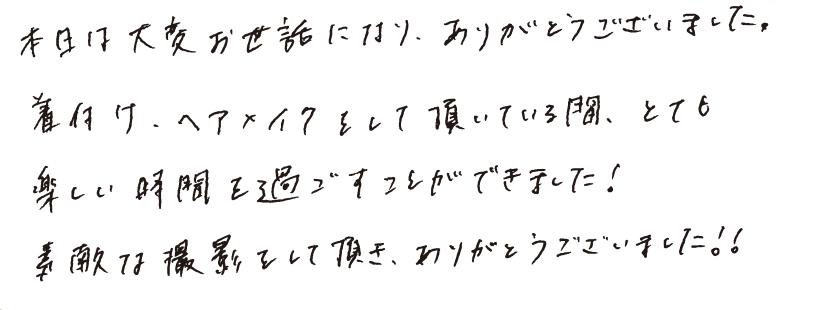 本日は大変お世話になり、ありがとうございました。
着付け、ヘアメイクをして頂いている間、とても
楽しい時間を過ごすことができました!
素敵な撮影をして頂き、ありがとうございました!!